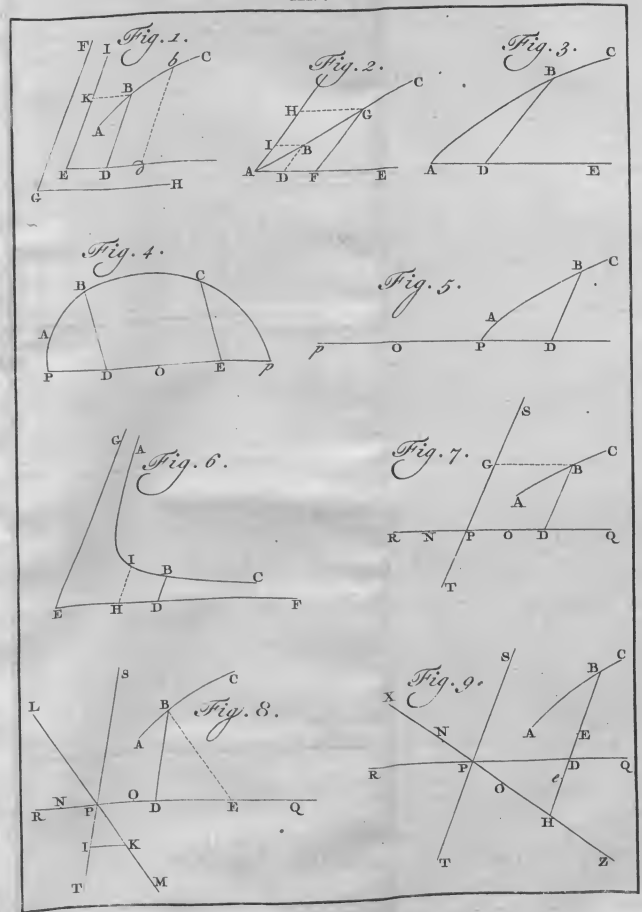 Fig. 1.
F
I
K
B
b
C
A
E
D
G
H
Fig. 2.
C
H
G
I
B
A
D
F
E
Fig. 3.
C
B
A
D
E
Fig. 4.
B
C
A
P
D
O
E
p
Fig. 5.
C
B
A
p
O
P
D
Fig. 6.
G
A
I
B
C
E
H
D
F
Fig. 7.
S
C
G
B
A
R
N
P
O
D
Q
T
Fig. 8.
S
C
L
B
A
N
O
R
P
D
E
Q
I
K
T
M
Fig. 9.
S
C
B
X
N
A
E
R
P
D
Q
e
O
H
T
Z